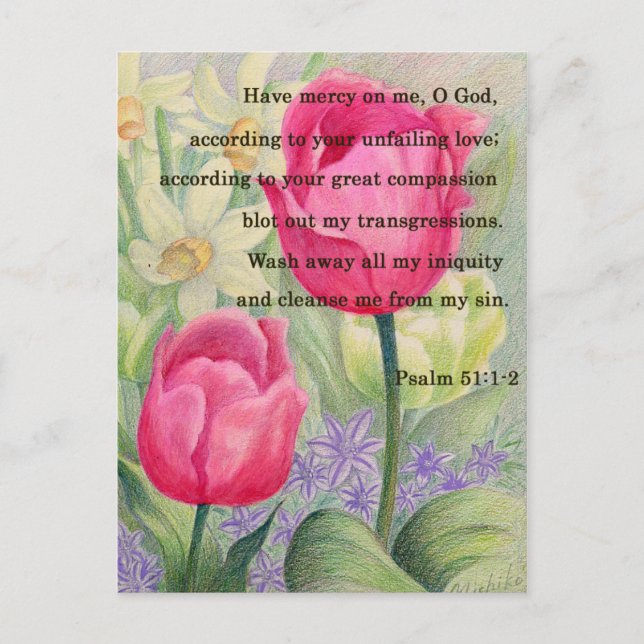 Have mercy on me, O God,
according to your unfailing love;
according to your great compassion
blot out my transgressions.
Wash away all my iniquity
and cleanse me from my sin.
Psalm 51:1-2
Michiko